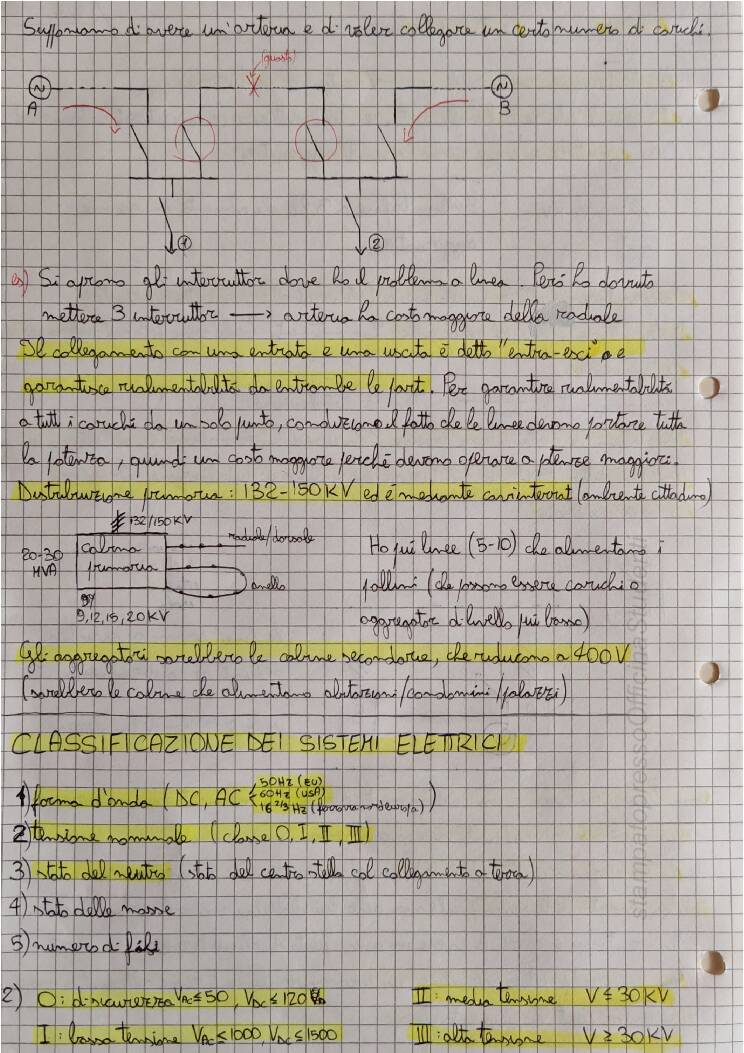 Supponiamo di avere un'arteria e di voler collegare un certo numero di carichi.
(guasto)
A
B
1
2
es) Si aprono gli interruttori dove ho il problema a linea. Però ho dovuto
mettere 3 interruttori → arteria ha costo maggiore della radiale
Il collegamento con una entrata e una uscita è detto "entra-esci" e
garantisce rialimentabilità da entrambe le parti. Per garantire rialimentabilità
a tutti i carichi da un solo punto, condiziono il fatto che le linee devono portare tutta
la potenza, quindi un costo maggiore perché devono operare a ptenze maggiori.
Distribuzione primaria: 132-150KV ed è mediante cavi interrati (ambiente cittadino)
132/150KV
20-30 MVA
cabina primaria
radiale/dorsale
anello
9,12,15,20KV
Ho più linee (5-10) che alimentano i
pallini (che possono essere carichi o
aggregatori di livello più basso)
Gli aggregatori sarebbero le cabine secondarie, che riducono a 400V
(sarebbero le cabine che alimentano abitazioni/condomini/palazzi)
CLASSIFICAZIONE DEI SISTEMI ELETTRICI
1) forma d'onda (DC, AC 50Hz (EU) 60Hz (USA) 16 2/3 Hz (ferrovia nordeuropa))
2) tensione nominale (classe 0, I, II, III)
3) stato del neutro (stato del centro stella col collegamento a terra)
4) stato delle masse
5) numero di fili
2) 0: di sicurezza VAC≤50, VDC≤120
II: media tensione V≤30KV
I: bassa tensione VAC≤1000, VDC≤1500
III: alta tensione V≥30KV
stampatopressoOfficinaStudenti